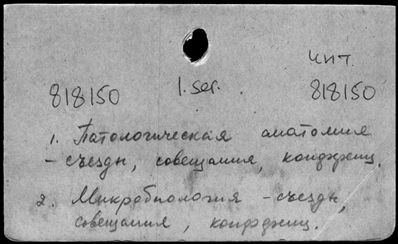 чит.
818150 1. ser. 818150
1. Патологическая анатомия
- съезды, совещания, конференц.
2. Микробиология - съезды,
совещания, конференц.